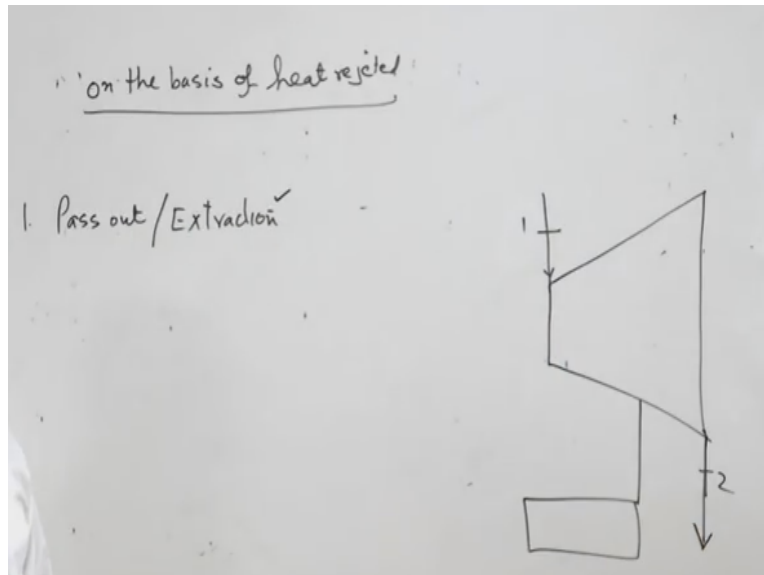 on the basis of heat rejcted
1. Pass out / Extraction ✓
1
2